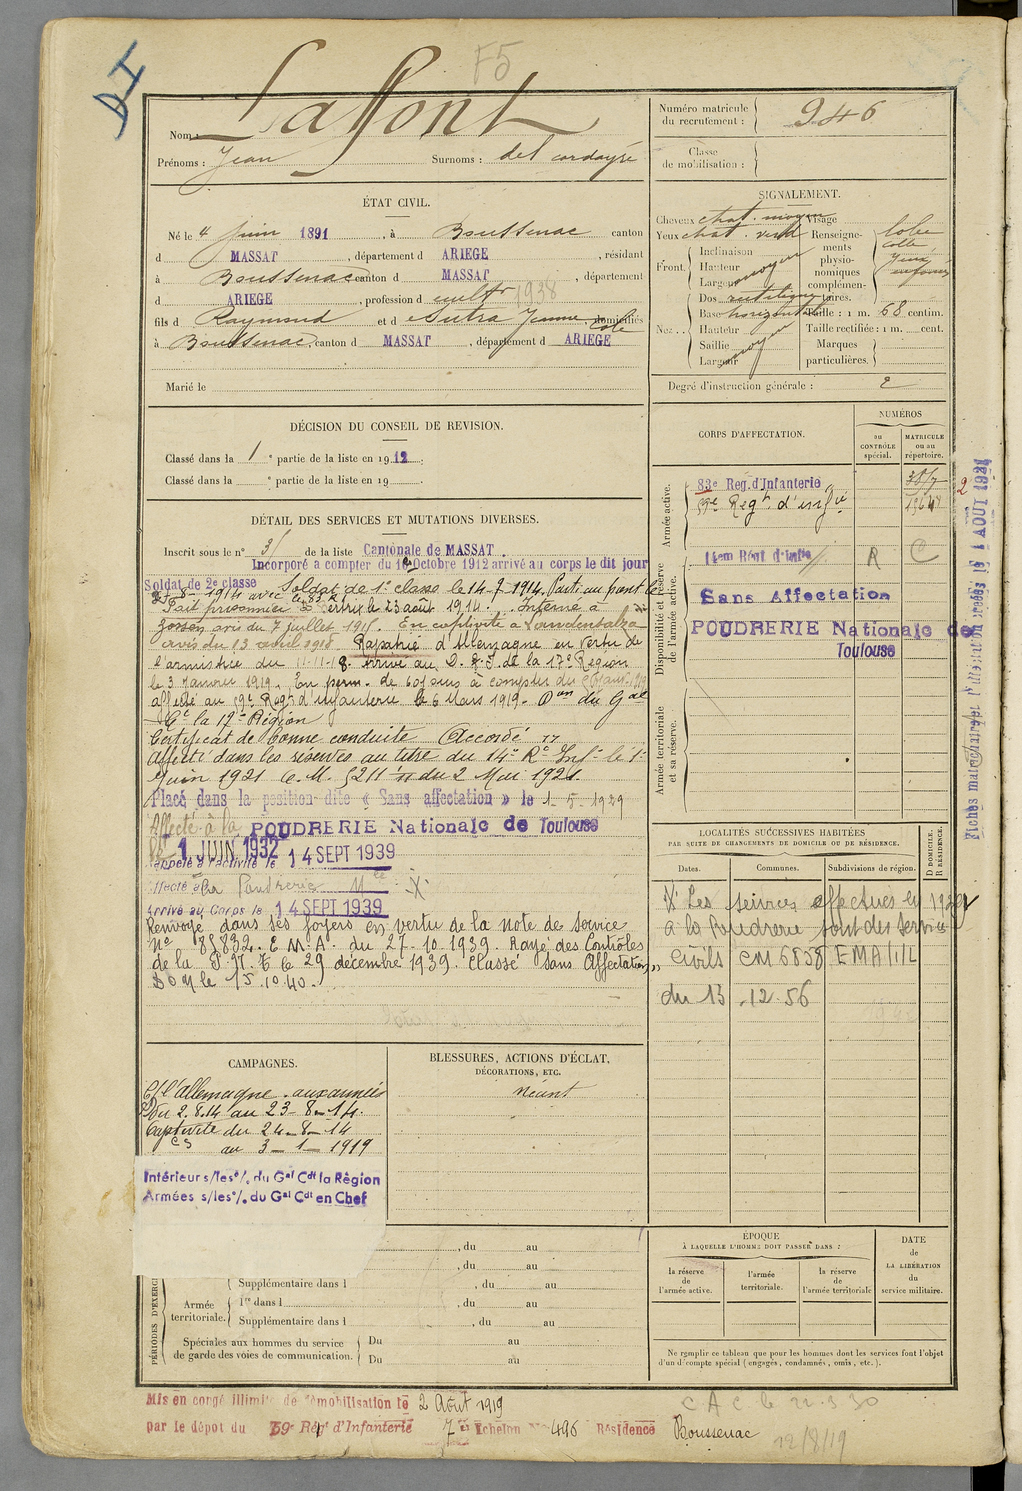 F5
Nom : Laffont
Prénoms : Jean Surnoms : del cordayré
Numéro matricule du recrutement : 946
Classe de mobilisation :
ÉTAT CIVIL.
Né le 4 Juin 1891, à Boussenac canton
d MASSAT, département d ARIEGE, résidant
à Boussenac canton d MASSAT, département
d ARIEGE, profession d cultr 1938
fils d Raymond et d Sutra Jeanne, domiciliés
à Boussenac, canton d MASSAT, département d ARIEGE
Marié le
SIGNALEMENT.
Cheveux chat. moyen Visage
Yeux chat. verd
Front. Inclinaison
Hauteur moyen
Largeur
Nez.. Dos rectiligne
Base horizontale
Hauteur
Saillie moyen
Largeur
Renseignements physionomiques complémentaires.
Taille : 1 m. 68 centim.
Taille rectifiée : 1 m. cent.
Marques particulières.
Degré d'instruction générale : 2
DÉCISION DU CONSEIL DE REVISION.
Classé dans la 1e partie de la liste en 1912.
Classé dans la e partie de la liste en 19
DÉTAIL DES SERVICES ET MUTATIONS DIVERSES.
Inscrit sous le n° 31 de la liste Cantonale de MASSAT.
Incorporé a compter du 10 Octobre 1912 arrivé au corps le dit jour
Soldat de 2e classe Soldat de 1e classe le 14-7-1914. Parti au front le
8-1914 avec le 83e
Fait prisonnier à Bertrix le 23 août 1914. Interné à
Zossen avis du 7 juillet 1915. En captivité à
avis du 13 avril 1918. Rapatrié d'Allemagne en vertu de
l'armistice du 11-11-18. Arrivé au D. de la 17e Région
le 3 Janvier 1919. En perm. de 60 jours à compter du
affecté au 59e Regt d'infanterie le 6 Mars 1919. Don du Gal
Ct la 17e Région
Certificat de bonne conduite Accordé
Affecté dans les réserves au titre du 14e Rt Inf. le 1e
Juin 1921 C.M. 5211 du 2 Mai 1921.
Placé dans la position dite « Sans affectation » le 1-5-1929
Affecté à la POUDRERIE Nationale de Toulouse
le 1 JUIN 1932
Rappelé à l'activité le 14 SEPT 1939
Affecté à la Poudrerie Nle X
Arrivé au Corps le 14 SEPT 1939
Renvoyé dans ses foyers en vertu de la note de service
N° 85832. E.M.A. du 27-10-1939. Rayé des Contrôles
de la P.N.T. le 29 décembre 1939. Classé "Sans Affectation"
le 15.10.40.
CORPS D'AFFECTATION.
NUMÉROS
au CONTRÔLE spécial.
MATRICULE ou au répertoire.
Armée active.
83e Reg. d'Infanterie
59e Regt d'infie
Disponibilité et réserve de l'armée active.
14em Régt d'Infie R
Sans Affectation
POUDRERIE Nationale de
Toulouse
Armée territoriale et sa réserve.
LOCALITÉS SUCCESSIVES HABITÉES
PAR SUITE DE CHANGEMENTS DE DOMICILE OU DE RÉSIDENCE.
Dates. Communes. Subdivisions de région. D DOMICILE. R RÉSIDENCE.
X Les services effectués en
à la Poudrerie sont des services
civils CM 6858 EMA/1/L
du 13.12.56
CAMPAGNES.
C/ l'Allemagne. aux armées
Du 2.8.14 au 23-8-14.
Captivité du 24-8-14
au 3-1-1919
Intérieur s/les o/. du Gal Cdt la Région
Armées s/les o/. du Gal Cdt en Chef
BLESSURES, ACTIONS D'ÉCLAT,
DÉCORATIONS, ETC.
Néant
, du au
, du au
Supplémentaire dans l , du au
Armée territoriale.
1re dans l , du au
Supplémentaire dans l , du au
Spéciales aux hommes du service de garde des voies de communication.
Du au
Du au
ÉPOQUE
À LAQUELLE L'HOMME DOIT PASSER DANS :
la réserve de l'armée active.
l'armée territoriale.
la réserve de l'armée territoriale
DATE de LA LIBÉRATION du service militaire.
Ne remplir ce tableau que pour les hommes dont les services font l'objet
d'un d'compte spécial (engagés, condamnés, omis, etc.).
Mis en congé illimité de démobilisation le 2 Août 1919
par le dépot du 59e Régt d'Infanterie 7e Echelon No 496 Résidence Boussenac
12/8/19